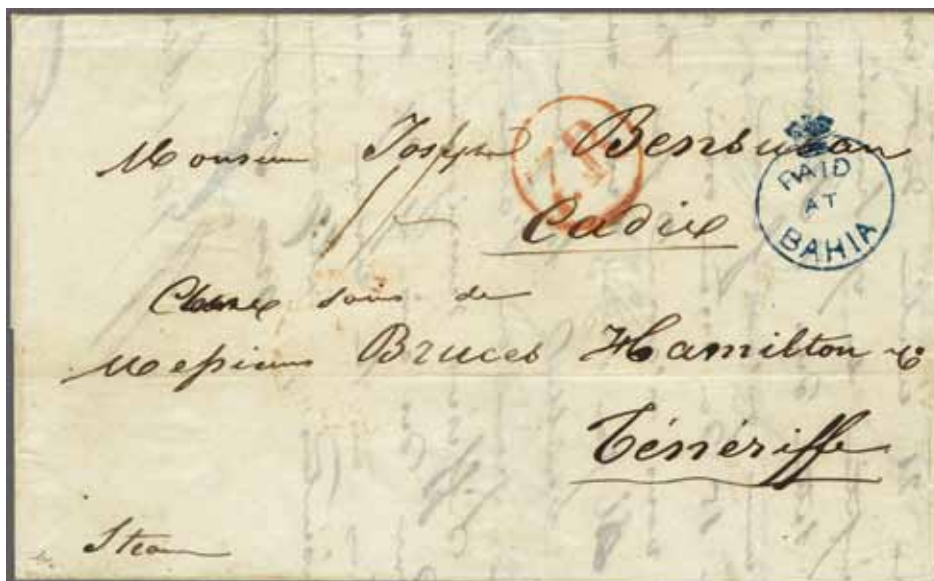 Monsieur Joseph Bensusan
1/-
Cadix
PAID
AT
BAHIA
aux soins de
Messieurs Bruces Hamilton & Co
Ténériffe
Steam